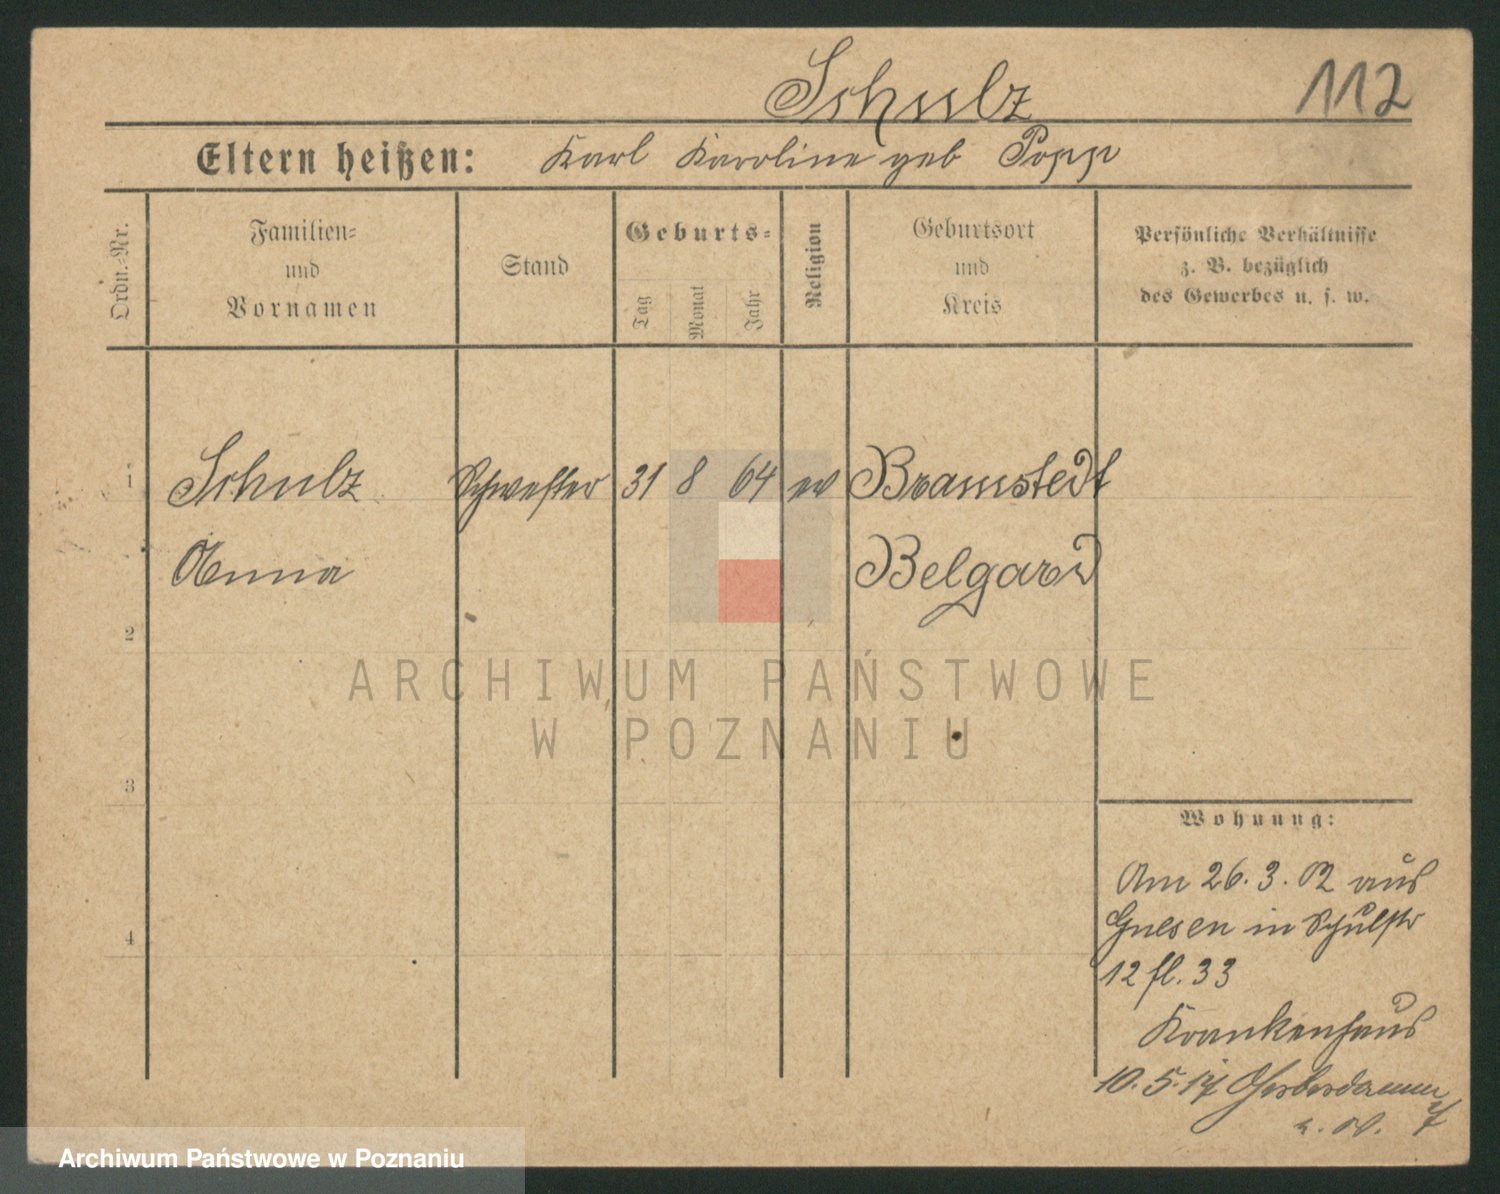 Schulz 112
Eltern heißen: Karl Karoline geb Popp
Ordn.-Nr.
Familien-
und
Vornamen
Stand
Geburts-
Tag
Monat
Jahr
Religion
Geburtsort
und
Kreis
Persönliche Verhältnisse
z. B. bezüglich
des Gewerbes u. s. w.
1 Schulz Schwester 31 8 64 ev Bramstedt
Anna Belgard
2
ARCHIWUM PAŃSTWOWE
W POZNANIU
3
Wohnung:
Am 26. 3. 02 aus
Gnesen in Schulstr
4
12 fl. 33
Krankenhaus
10. 5. 17 Gerberdamm
Archiwum Państwowe w Poznaniu